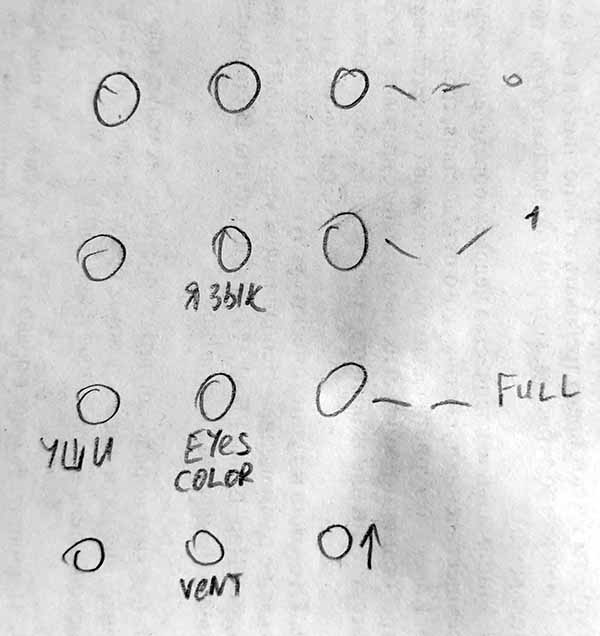 0
1
ЯЗЫК
FULL
УШИ EYES
COLOR
↑
VENT